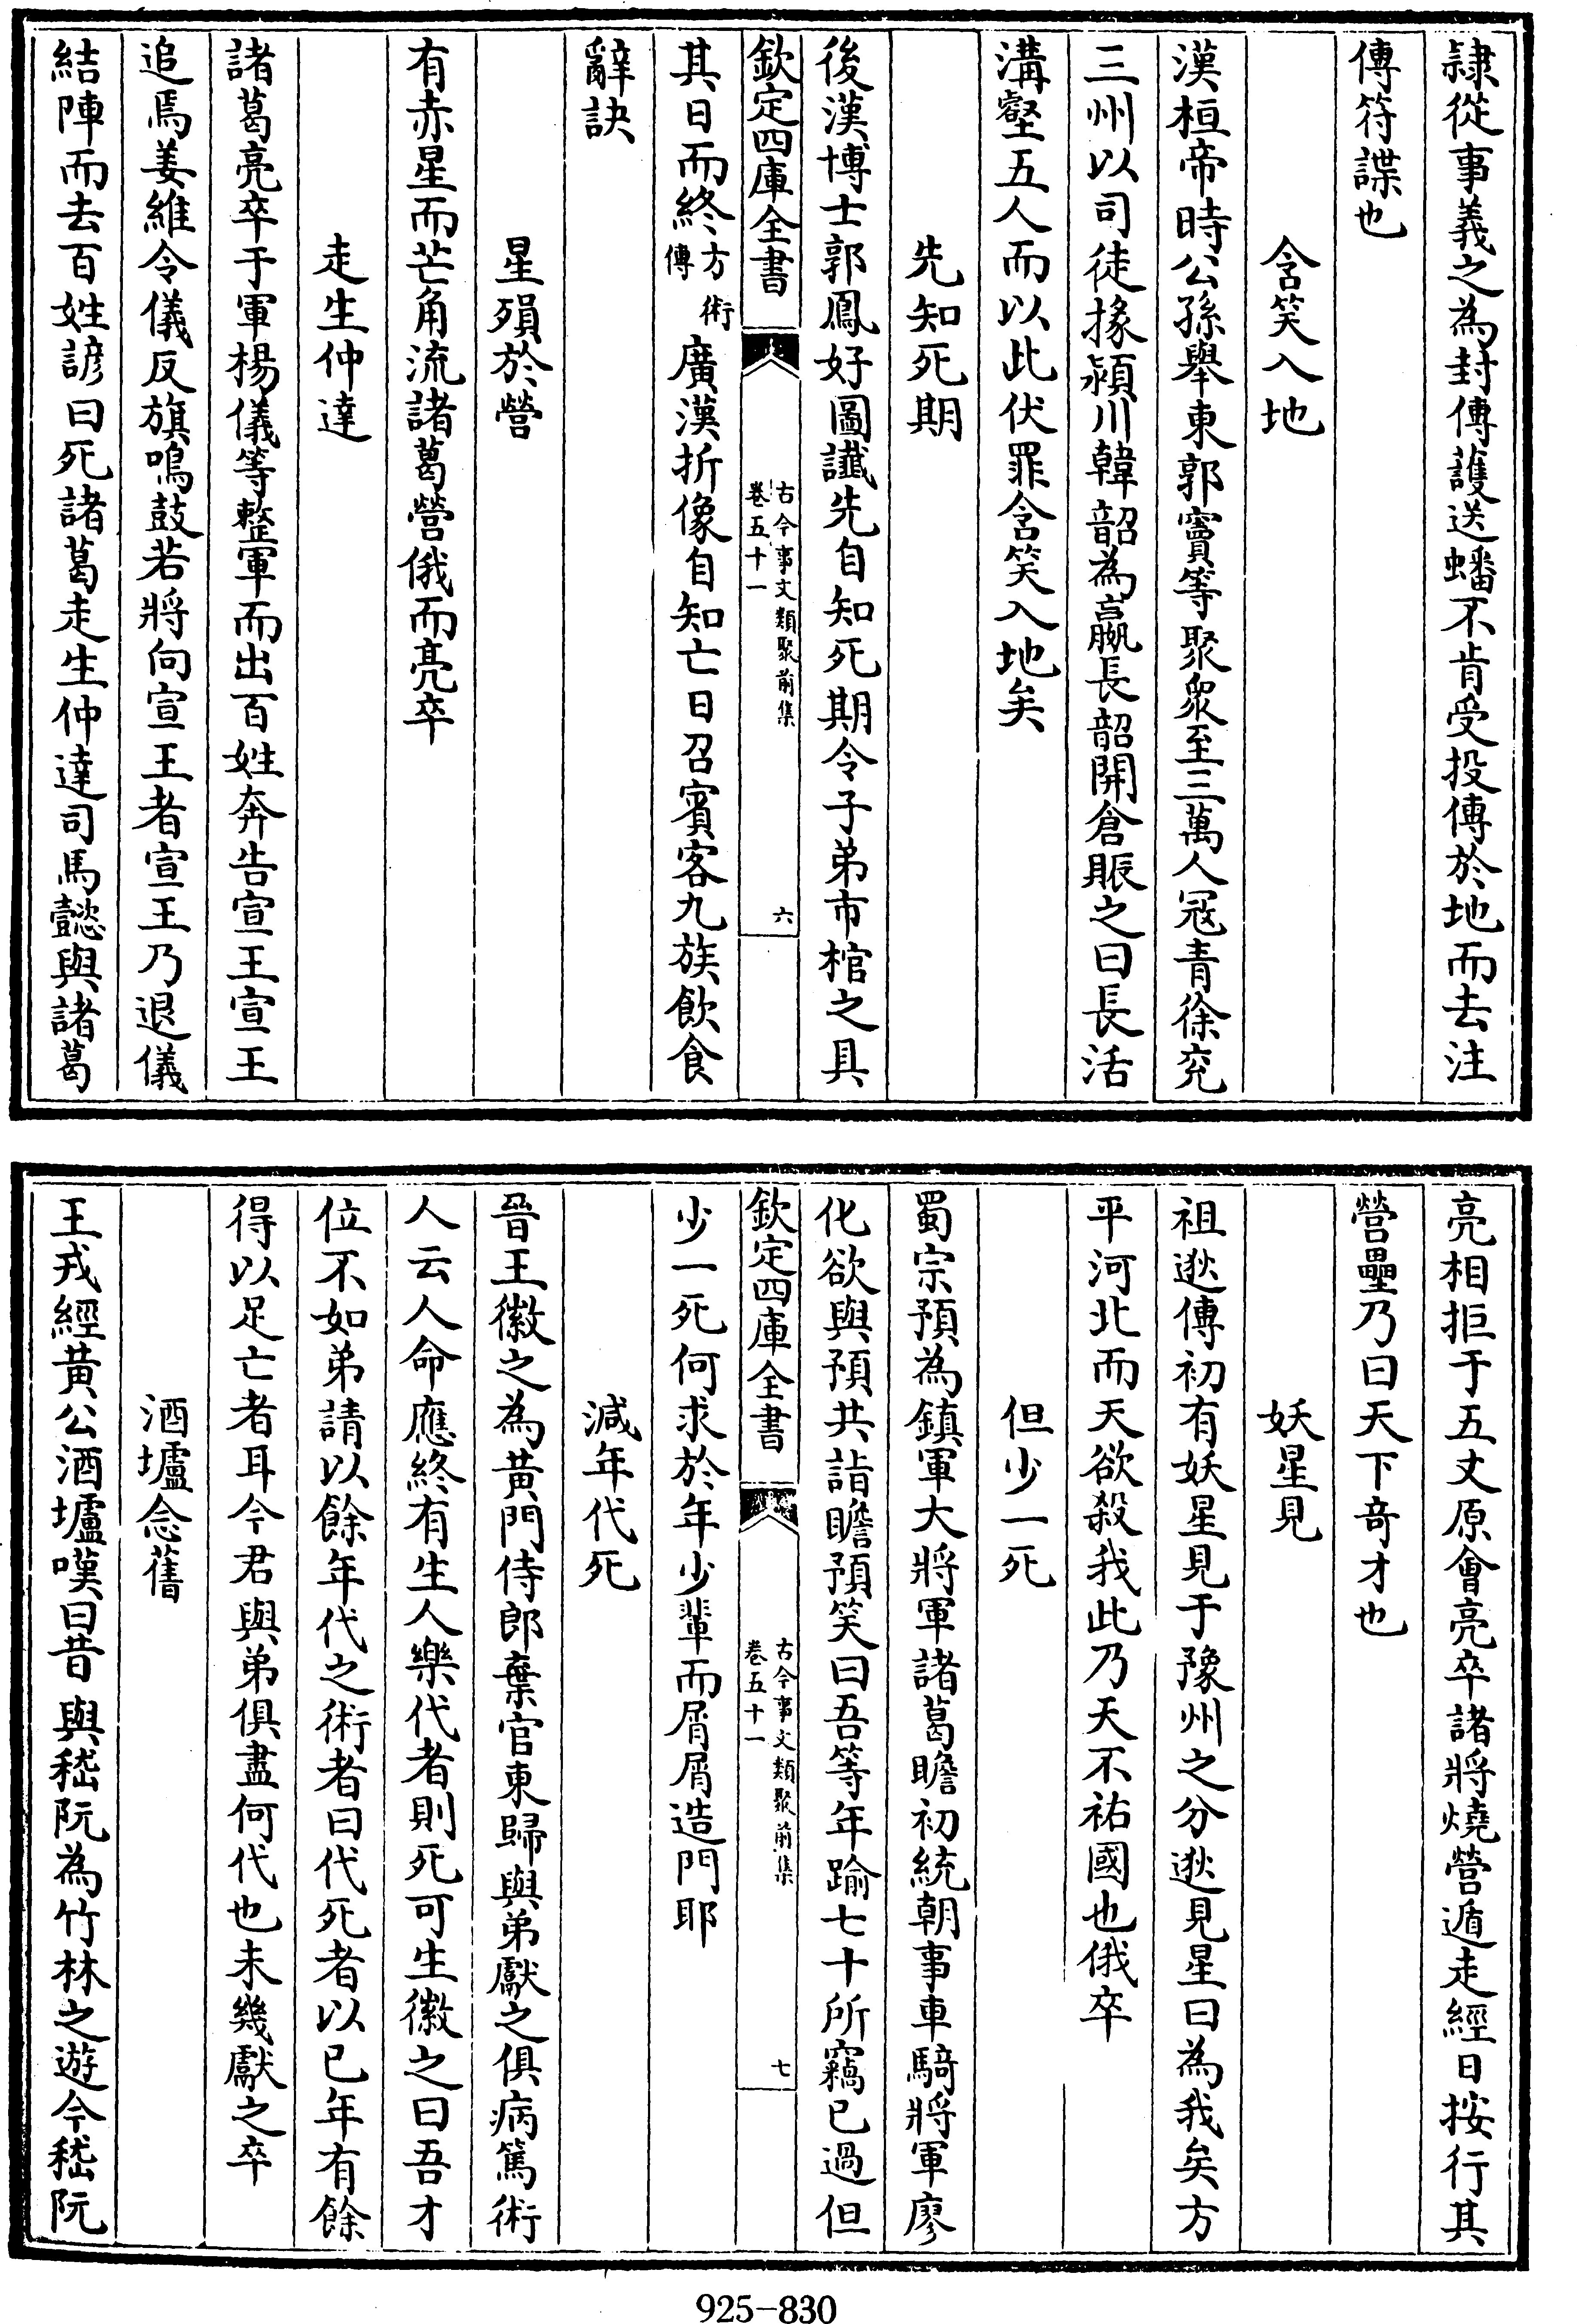 隷從事義之為封傳護送蟠不肯受投傳於地而去注
傳符諜也
含笑入地
漢桓帝時公孫舉東郭竇等聚衆至三萬人冦青徐兖
三州以司徒掾潁川韓韶為嬴長韶開倉賑之曰長活
溝壑五人而以此伏罪含笑入地矣
先知死期
後漢博士郭鳳好圖讖先自知死期令子弟市棺之具
欽定四庫全書
古今事文類聚前集
卷五十一
六
其日而終方術傳廣漢折像自知亡日召賓客九族飲食
辭訣
星殞於營
有赤星而芒角流諸葛營俄而亮卒
走生仲達
諸葛亮卒于軍楊儀等整軍而出百姓奔告宣王宣王
追焉姜維令儀反旗鳴鼓若將向宣王者宣王乃退儀
結陣而去百姓諺曰死諸葛走生仲達司馬懿與諸葛
亮相拒于五丈原會亮卒諸將燒營遁走經日按行其
營壘乃曰天下奇才也
妖星見
祖逖傳初有妖星見于豫州之分逖見星曰為我矣方
平河北而天欲殺我此乃天不祐國也俄卒
但少一死
蜀宗預為鎮軍大將軍諸葛瞻初統朝事車騎將軍廖
化欲與預共詣瞻預笑曰吾等年踰七十所竊已過但
欽定四庫全書
古今事文類聚前集
卷五十一
七
少一死何求於年少輩而屑屑造門耶
減年代死
晉王徽之為黃門侍郎棄官東歸與弟獻之俱病篤術
人云人命應終有生人樂代者則死可生徽之曰吾才
位不如弟請以餘年代之術者曰代死者以已年有餘
得以足亡者耳今君與弟俱盡何代也未幾獻之卒
酒壚念舊
王戎經黃公酒壚嘆曰昔與嵇阮為竹林之遊今嵇阮
925-830